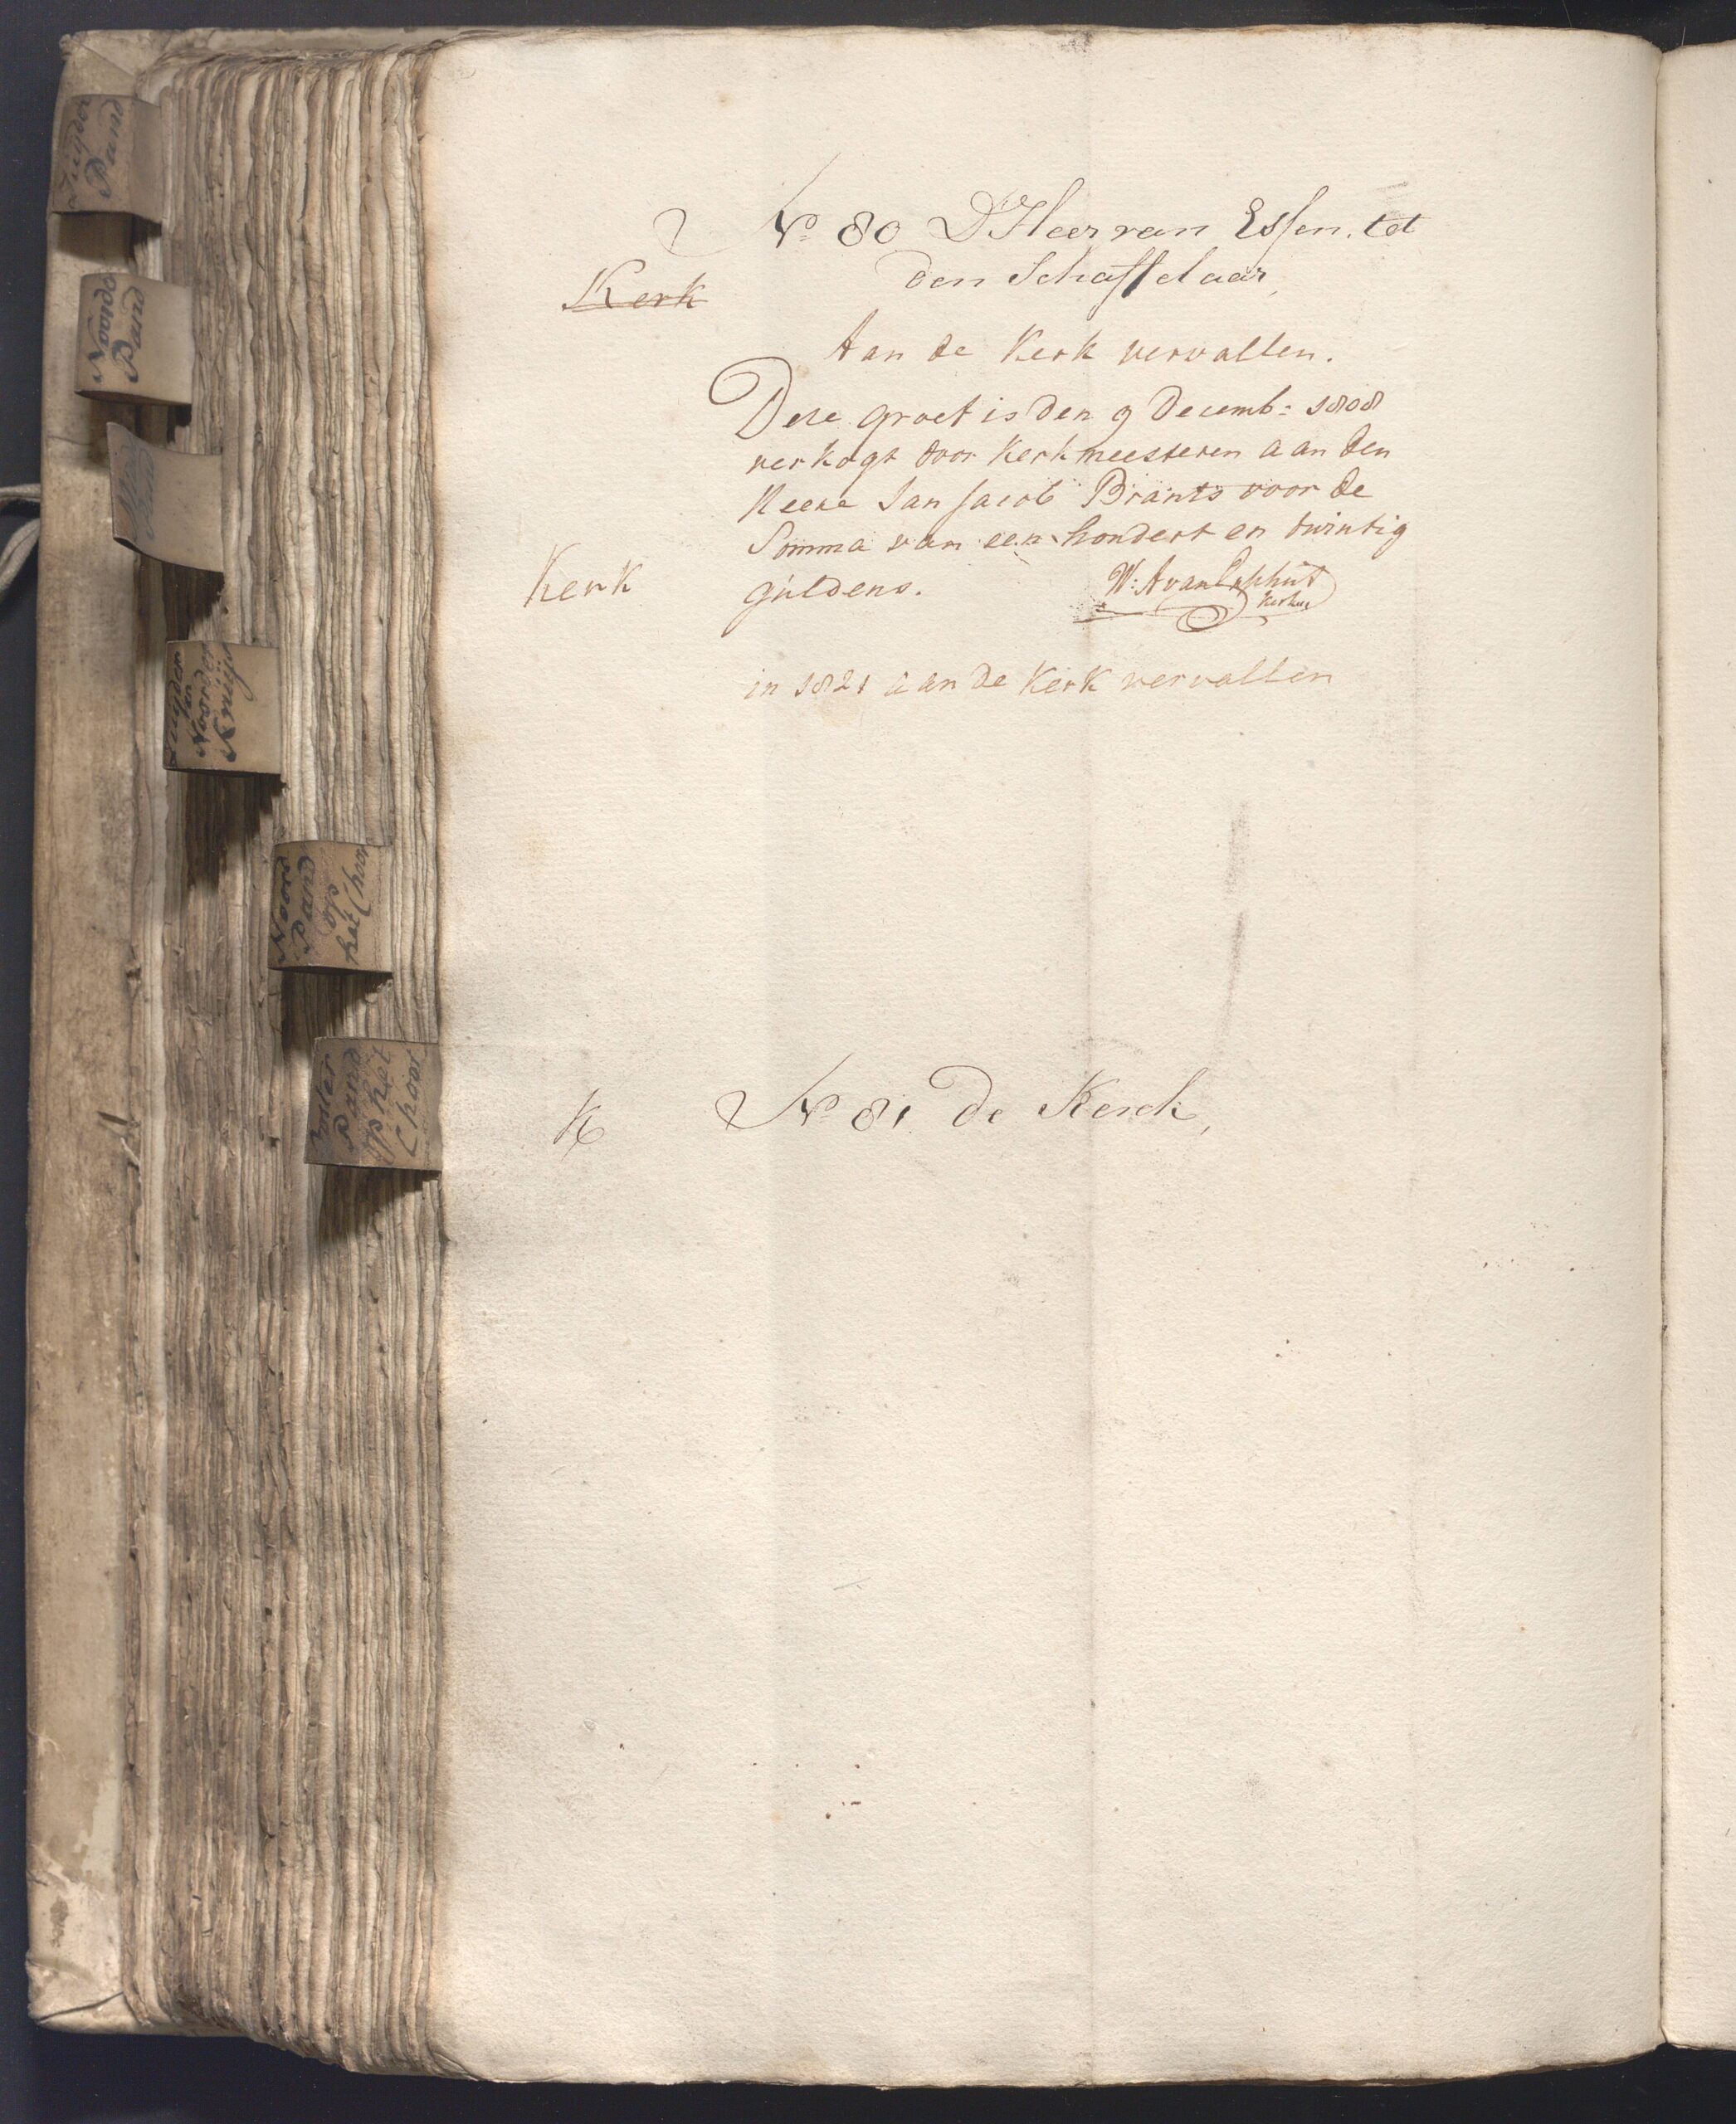 Zuyder
Pand
Noorder
Pand
Zuyder
en
Noorder
Kruijs
Noord
Pand
op
het Choor
Pand
op het
Choor
No 80 D'Heer van Essen tot
den Schaffelaar,
Kerk
Aan de Kerk vervallen.
Deze groef is den 9 Decemb: 1808
verkogt door Kerkmeesteren aan den
Heere Jan Jacob Brants voor de
Somma van een hondert en twintig
Kerk guldens.
W: A van
in 1821 aan de Kerk vervallen
K No 81 de Kerck,